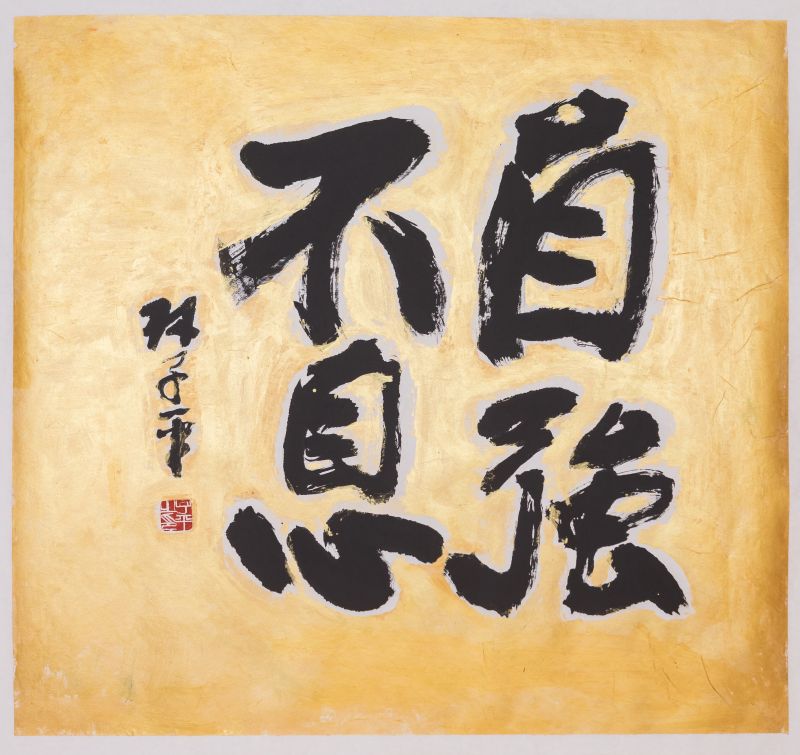 自強
不息
林子平